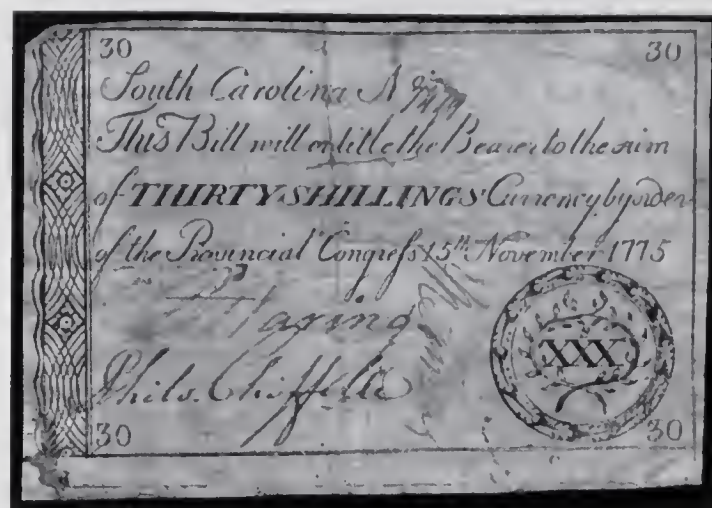 30 30
South Carolina N
This Bill will entitle the Bearer to the sum
of THIRTY SHILLINGS Currency by order
of the Provincial Congreſs 15th November 1775
Haring
Philo. Chiffelle
XXX
30 30